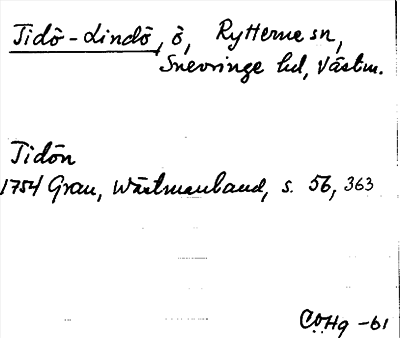 Tidö-Lindö, ö, Rytterne sn,
Snevringe hd, Västm.
Tidön
1754 Grau, Wästmanland, s. 56, 363
C.O.Hg -61